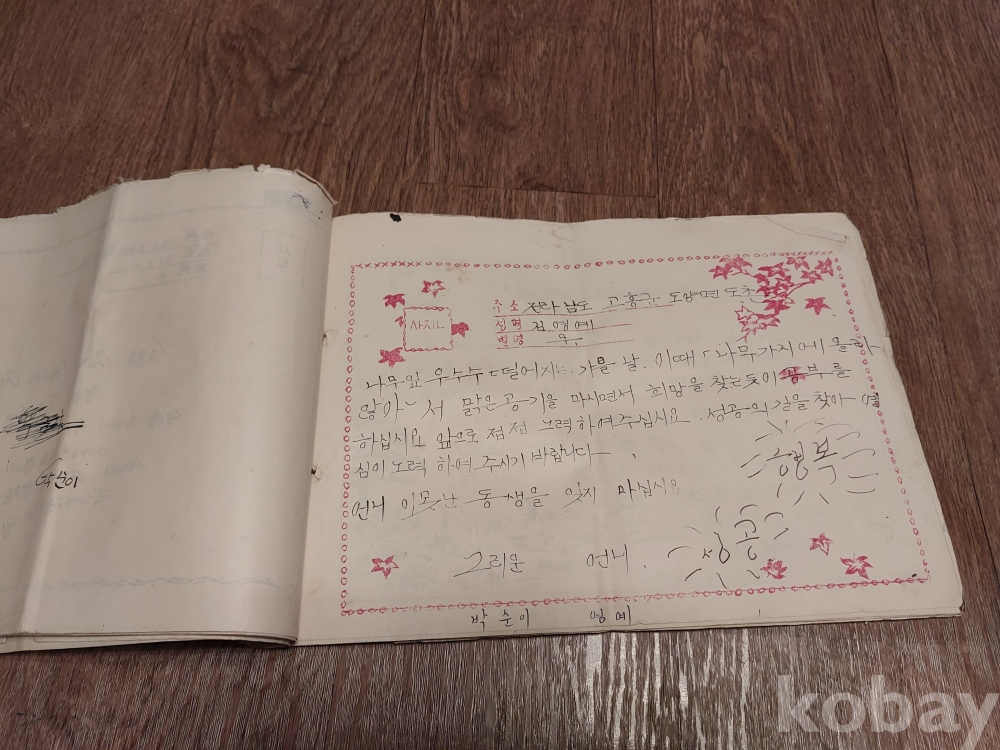 박순이
사진
주소 전라남도 고흥군 도양면
성명 김영예
별명 무.
나무잎 우수수 떨어지는 가을 날. 이때 나무가지에 올라
앉아서 맑은공기을 마시면서 희망을 찾는듯이 공부를
하십시요 앞으로 점점 노력하여주십시요. 성공의 길을 찾아 열
심이 노력 하여 주시기 바랍니다.
언니 이못난 동생을 잊지 마십시요
행복
성공
그리운 언니.
박순이 영예
kobay